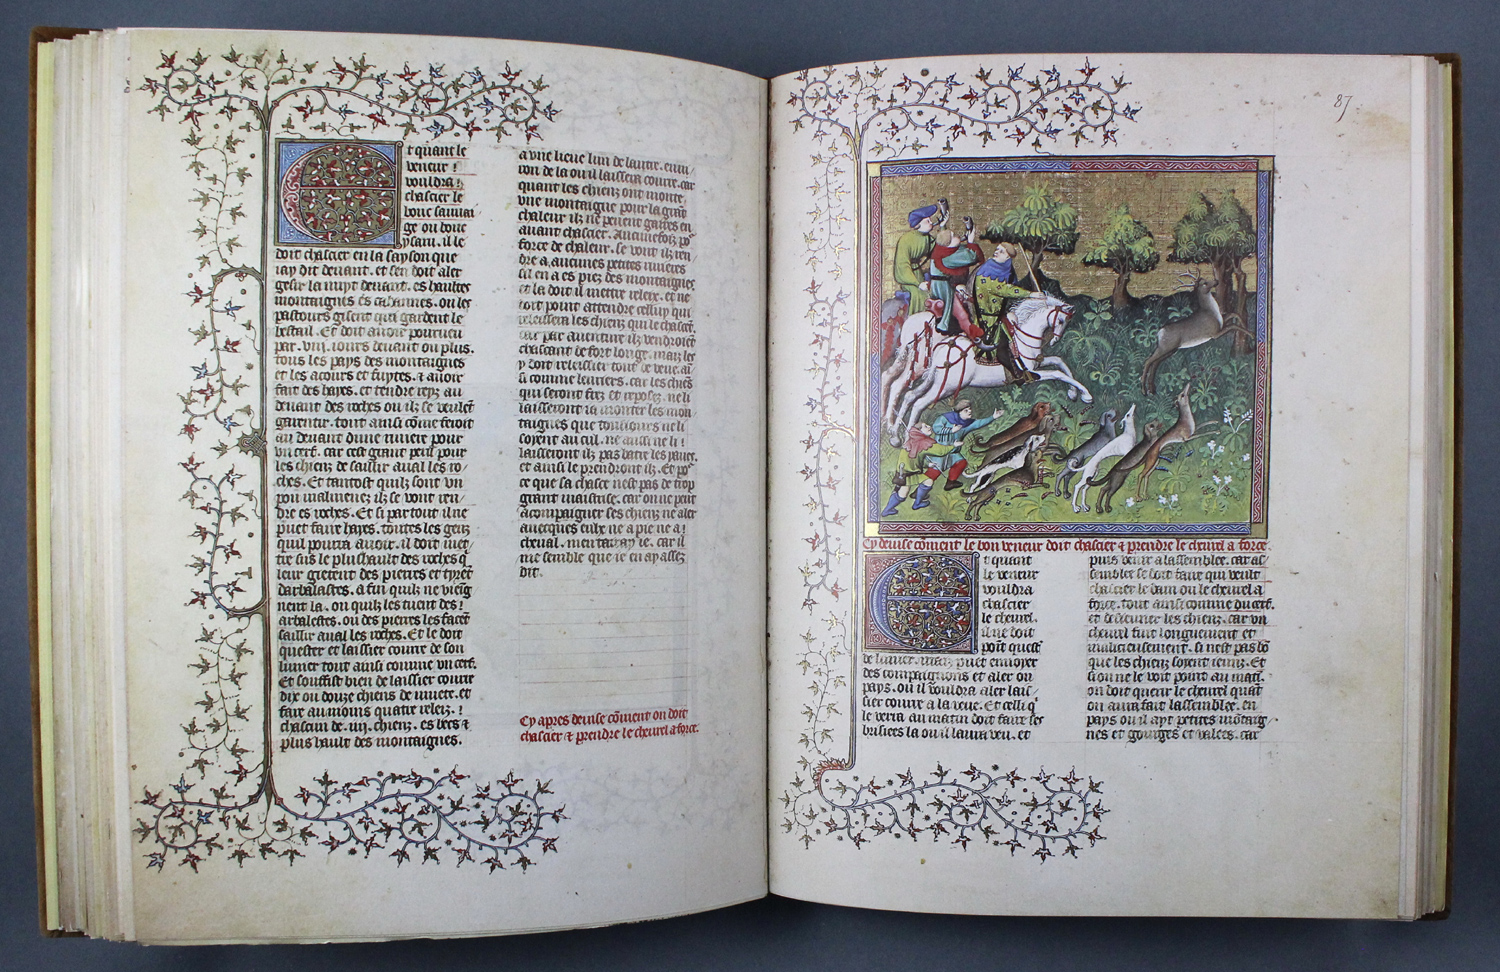 Et quant le
veneur
vouldra
chascier le
bouc sauuai
ge ou bouc
ysam. il le
doit chascier en la sayson que
iay dit deuant. et sen doit aler
gesir la nuyt deuant. es haultes
montaignes es cabannes. ou les
pastours gisent qui gardent le
bestail. Et doit auoir pourueu
par. viij. iours deuant ou plus.
tous les pays des montaignes
et les acours et fuytes. & auoir
fait des hayes. et tendre reyz au
deuant des roches ou ilz se veulent
garentir. tout ainsi come feroit
au deuant dune riuiere pour
vn cerf. car cest grant peril pour
les chienz de saillir aual les ro-
ches. Et tantost quilz sont vn
pou malmenez ilz se vont ren/
dre es roches. Et si par tout il ne
puet faire hayes. toutes les genz
quil pourra auoir. il doit met
tre sus le plus hault des roches q
leur gietent des pierres et tyrent
darbalastes. a fin quilz ne vieig
nent la. ou quilz les tuent des
arbalestes. ou des pierres les facent
saillir aual les roches. Et le doit
quester et laissier courre de son
limier tout ainsi comme vn cerf.
Et souffist bien de laissier courre
dix ou douze chiens de muete. et
faire au moins quatre releiz.
chascun de. iiij. chienz. es becs &
plus hault des montaignes.
a vne lieue lun de lautre. enui/
ron de la ou il laissera courre. car
quant les chienz ont monte
vne montaigne pour la grant
chaleur ilz ne peuent gaires en
auant chascier. Aucunefoiz por
force de chaleur. se vont ilz ren/
dre a. aucunes petites riuieres
sil en a es piez des montaignes
et la doit il mettre releiz. et ne
doit point attendre celluy qui
releissera les chienz qui le chascent.
car par auenture ilz vendroient
chascant de fort longe. mais les
y doit releissier tout de veue. au
si comme leuriers. car les chiens
qui seront frez et reposez. ne li
laisseront ia monter les mon
taignes que tousiours ne li
soyent au cul. ne aussi ne li
laisseront ilz pas batre les yaues.
et ainsi le prendront ilz. Et por
ce que sa chasce nest pas de trop
grant maistrise. car on ne peut
acompaignier ses chienz ne aler
auecques eulx ne a pie ne a
cheual. men tayray ie. car il
me semble que ie en ay assez
dit.
Cy apres deuise coment on doit
chascier & prendre le cheurel a force.
87
Cy deuise coment le bon veneur doit chascier & prendre le cheurel a force.
Et quant
le veneur
vouldra
chascier
le cheurel.
il ne doit
point quest
de limier. mais puet enuoyer
des compaignons et aler ou
pays. ou il vouldra aler lais/
sier courre a la veue. Et cellui q
le verra au matin doit faire ses
brisiees la ou il laura veu. et
puis venir a lassemblee. car as/
semblee se doit faire qui veult
chascier le dain ou le cheurel a
force. tout ainsi comme du cerf.
et de deuurer les chienz. car vn
cheurel fuit longuement et
malicieusement. si nest pas bon
que les chienz soyent ieunz. Et
si on ne le voit point au matin.
on doit querir le cheurel quant
on aura fait lassemblee. en
pays ou il ayt petites montaig/
nes et gourges et valees. car